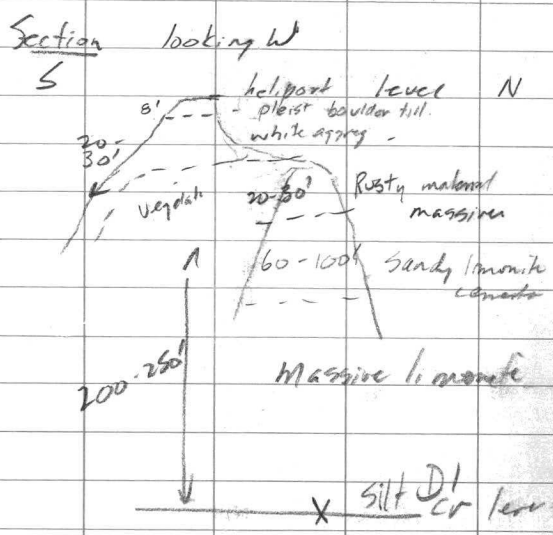 Section looking W
S
N
heliport level
8'
pleist boulder till.
white aggreg
20-
30'
Rusty material
20-30'
massive
60-100'
Sandy limonite
200-250'
Massive limonite
X Silt
Cr level